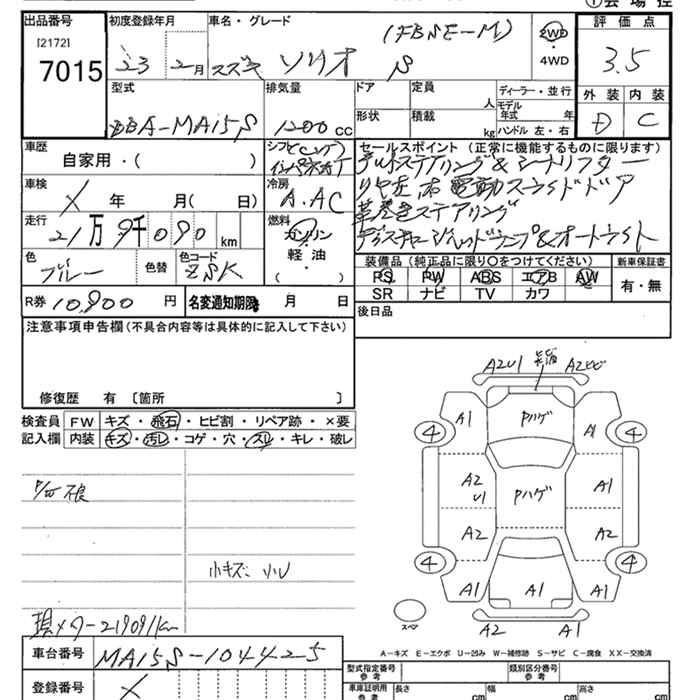 ①会場控
出品番号 初度登録年月 車名・グレード (FBSE-M) 2WD 評価点
[2172]
7015 23 2月 スズキ ソリオ S 4WD 3.5
型式 排気量 ドア 定員 人 ディーラー・並行 外装 内装
DBA-MA15S 1200cc 形状 積載 kg モデル年式 年 D C
ハンドル 左・右
車歴 シフト セールスポイント (正常に機能するものに限ります)
自家用・( ) インパネAT チルトステアリング&シートリフター
車検 冷房 リヤ左右電動スライドドア
X 年 月( 日) A.AC 革巻きステアリング
走行 燃料 ディスチャージヘッドランプ&オートライト
21万9千090km ガソリン
軽油
( )
色 色替 色コード 装備品 (純正品に限り○をつけてください) 新車保証書
ブルー ZSK PS PW ABS エアB AW 有・無
SR ナビ TV カワ
R券 10,800円 名変通知期限 月 日 後日品
注意事項申告欄(不具合内容等は具体的に記入して下さい)
修復歴 有 〔箇所 〕
検査員 FW キズ・飛石・ヒビ割・リペア跡・×要
記入欄 内装 キズ・汚レ・コゲ・穴・スレ・キレ・破レ
小キズ、小U
現メター219091km
車台番号 MA15S-104425
登録番号 X
A2U1 A2
A1 Pハゲ A1
4 4
A2 U1 Pハゲ A1
A2 A2
4 4
A1 A1 A1
スペア A2 A1
A-キズ E-エクボ U-凹み W-補修跡 S-サビ C-腐食 XX-交換済
型式指定番号 参考 類別区分番号 参考
車庫証明用 参考 長さ cm 幅 cm 高さ cm